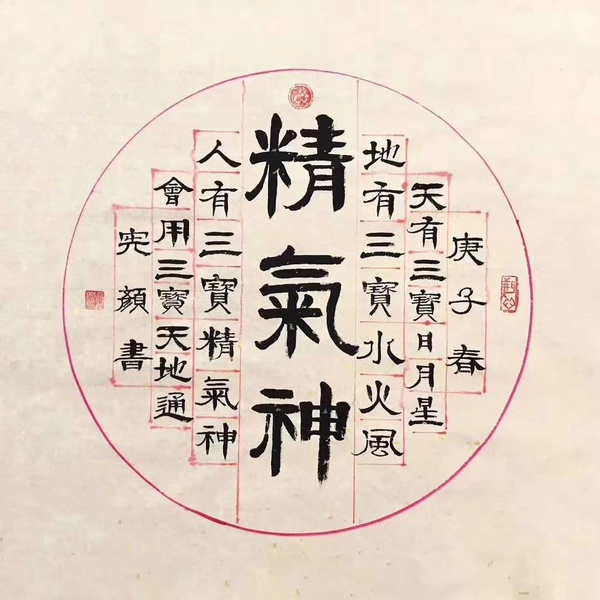 庚子春
天有三寶日月星
地有三寶水火風
精氣神
人有三寶精氣神
會用三寶天地通
宪顏書